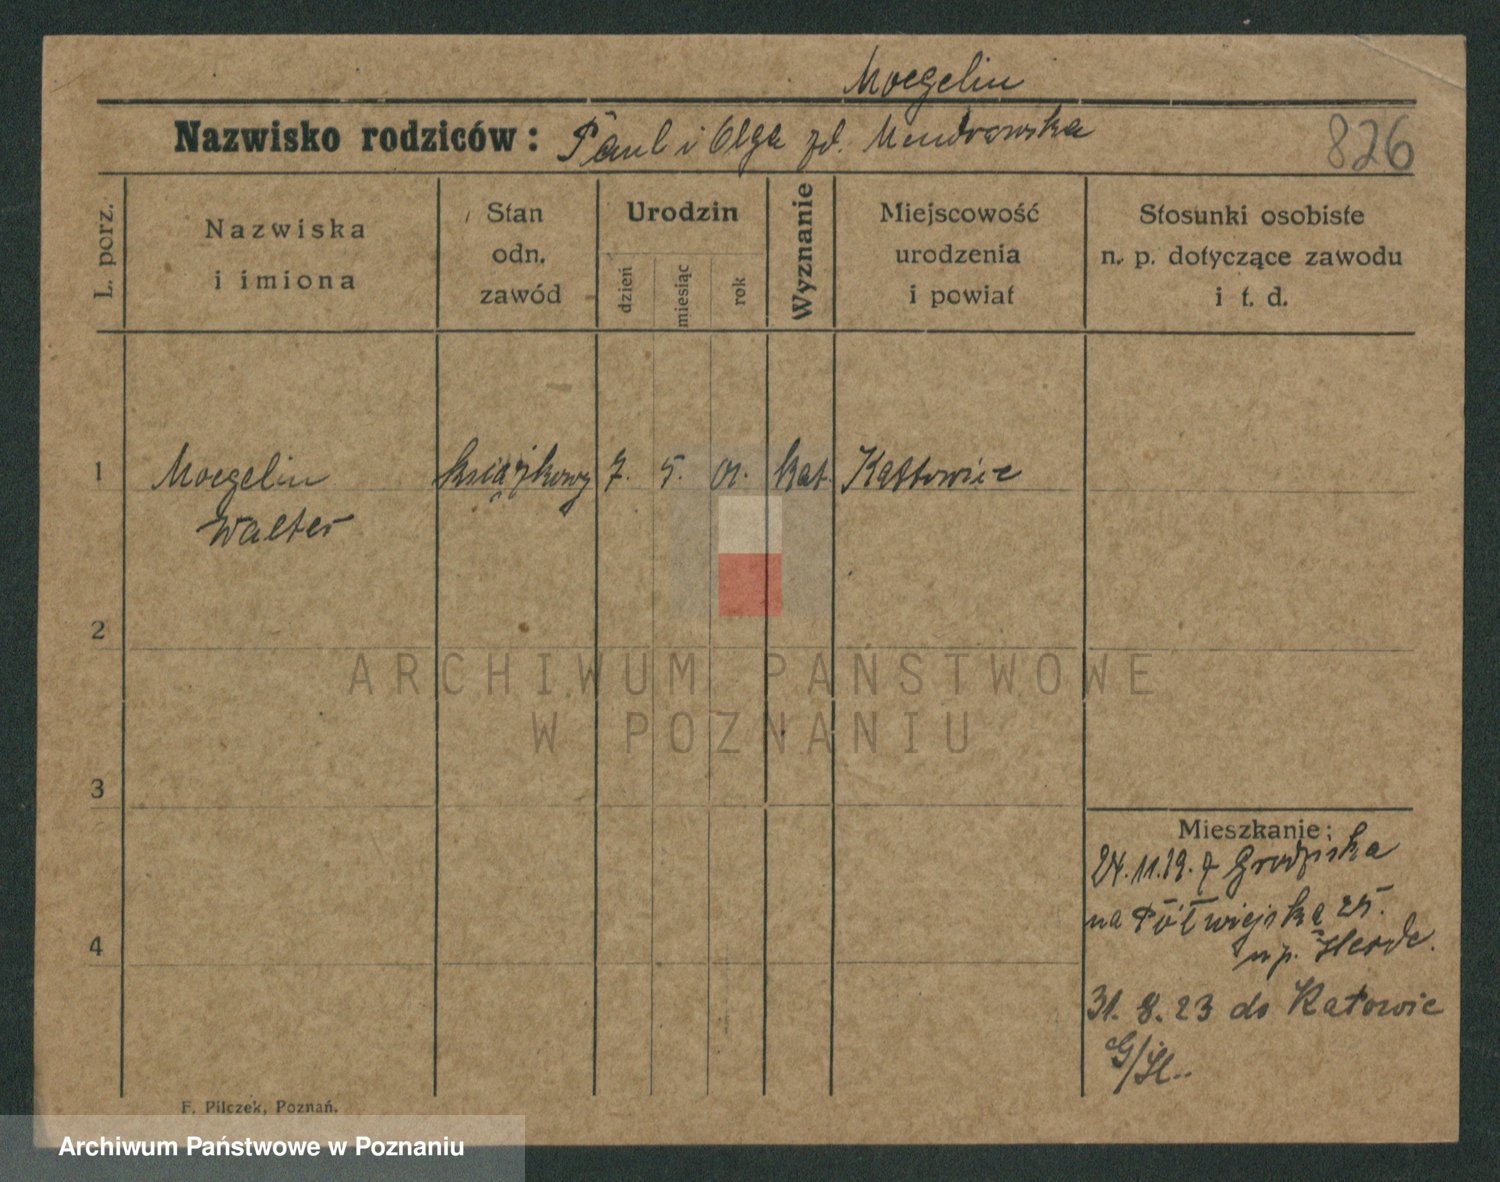 Moegelin
Nazwisko rodziców: Paul i Olga zd. Mendrowska
826
L. porz.
Nazwiska
i imiona
Stan
odn.
zawód
Urodzin
dzień
miesiąc
rok
Wyznanie
Miejscowość
urodzenia
i powiat
Stosunki osobiste
n. p. dotyczące zawodu
i t. d.
1 Moegelin książkowy 7. 5. 01. kat. Kattowice
Walter
2
ARCHIWUM PAŃSTWOWE
W POZNANIU
3
4
Mieszkanie:
24.11.19. z Grodziska
na Półwiejską 25.
np.
31. 8. 23 do Katowic
G/Śl.
F. Pilczek, Poznań.
Archiwum Państwowe w Poznaniu